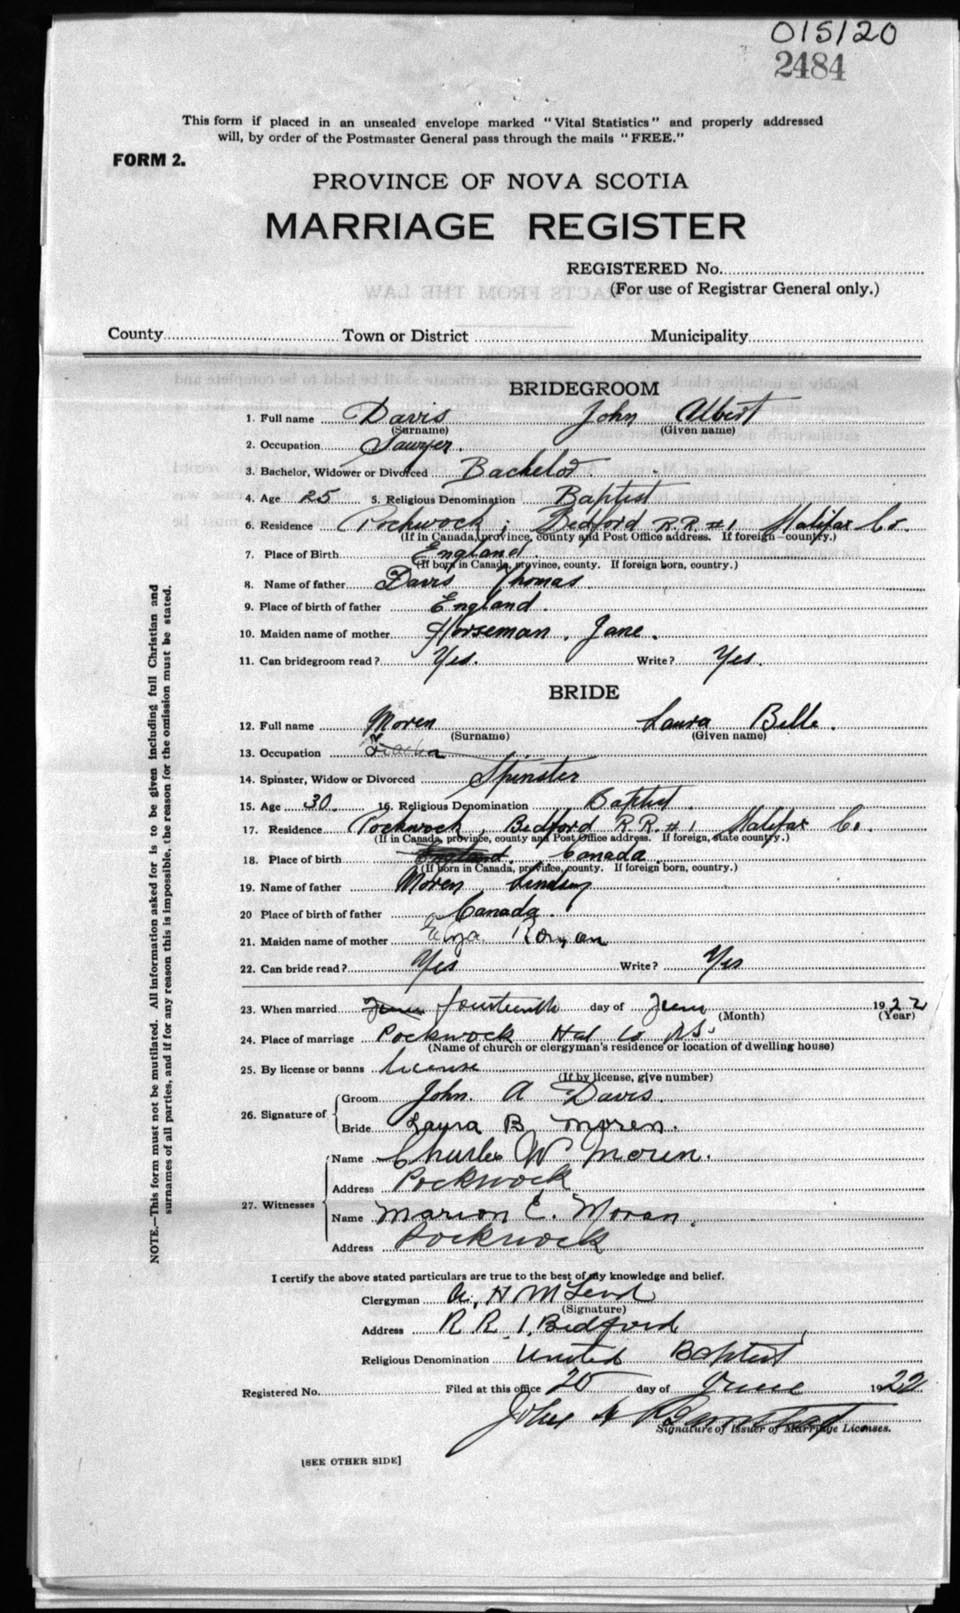 015120
2484
This form if placed in an unsealed envelope marked "Vital Statistics" and properly addressed
will, by order of the Postmaster General pass through the mails "FREE."
FORM 2.
PROVINCE OF NOVA SCOTIA
MARRIAGE REGISTER
REGISTERED No.
(For use of Registrar General only.)
County Town or District Municipality
BRIDEGROOM
1. Full name Davis John Albert
(Surname) (Given name)
2. Occupation Sawyer.
3. Bachelor, Widower or Divorced Bachelor
4. Age 25 5. Religious Denomination Baptist
6. Residence Pockwock; Bedford R.R #1 Halifax Co.
(If in Canada, province, county and Post Office address. If foreign—country.)
7. Place of Birth England.
(If born in Canada, province, county. If foreign born, country.)
8. Name of father Davis Thomas
9. Place of birth of father England.
10. Maiden name of mother Horseman, Jane.
11. Can bridegroom read? Yes. Write? Yes.
BRIDE
12. Full name Moren Laura Belle.
(Surname) (Given name)
13. Occupation
14. Spinster, Widow or Divorced Spinster
15. Age 30. 16. Religious Denomination Baptist.
17. Residence Pockwock, Bedford R.R. #1 Halifax Co.
(If in Canada, province, county and Post Office address. If foreign, state country.)
18. Place of birth England. Canada.
(If born in Canada, province, county. If foreign born, country.)
19. Name of father Moren Lindsay
20 Place of birth of father Canada.
21. Maiden name of mother
22. Can bride read? Yes Write? Yes
23. When married June fourteenth day of June 1922
(Month) (Year)
24. Place of marriage Pockwock Hal Co N.S.
(Name of church or clergyman's residence or location of dwelling house)
25. By license or banns License
(If by license, give number)
26. Signature of Groom John. A Davis.
Bride Laura B. Moren.
27. Witnesses Name Charles W Moren.
Address Pockwock
Name Marion E. Moran.
Address Pockwock
I certify the above stated particulars are true to the best of my knowledge and belief.
Clergyman A. H McLeod
(Signature)
Address R R. 1, Bedford
Religious Denomination United Baptist
Registered No. Filed at this office 20 day of June 1922
Signature of Issuer of Marriage Licenses.
[SEE OTHER SIDE]
NOTE.—This form must not be mutilated. All information asked for is to be given including full Christian and
surnames of all parties, and if for any reason this is impossible, the reason for the omission must be stated.